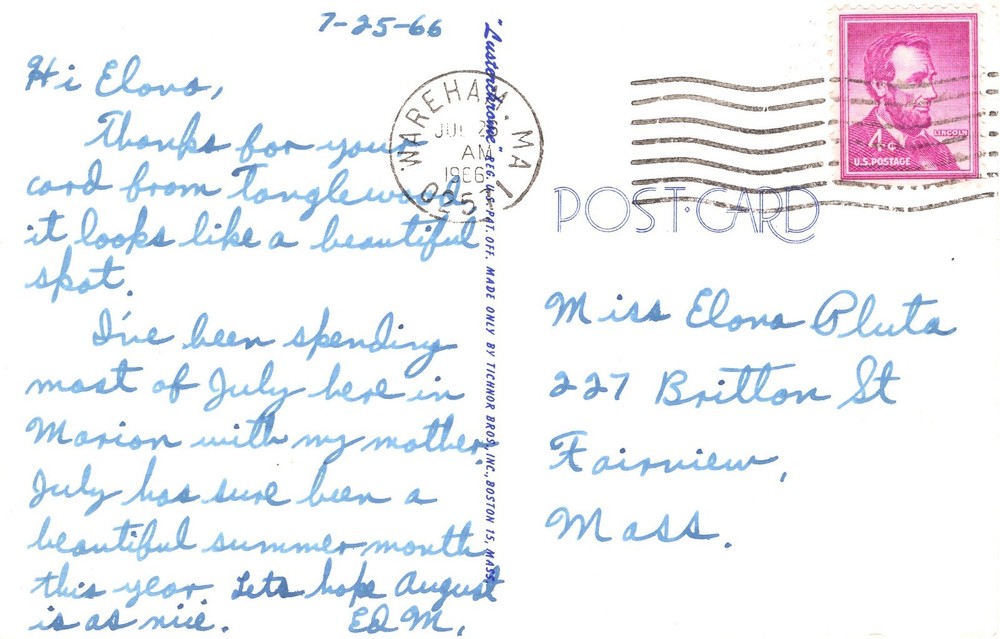 7-25-66
Hi Elona,
Thanks for your
card from Tanglewood
it looks like a beautiful
spot.
I've been spending
most of July here in
Marion with my mother.
July has sure been a
beautiful summer month
this year. Lets hope August
is as nice.
Ed M.
"Lusterchrome" REG. U.S. PAT. OFF. MADE ONLY BY TICHNOR BROS., INC., BOSTON 15, MASS.
WAREHAM. MA
AM
1966
LINCOLN
4¢
U.S. POSTAGE
POST·CARD
Miss Elona Pluta
227 Britton St
Fairview,
Mass.